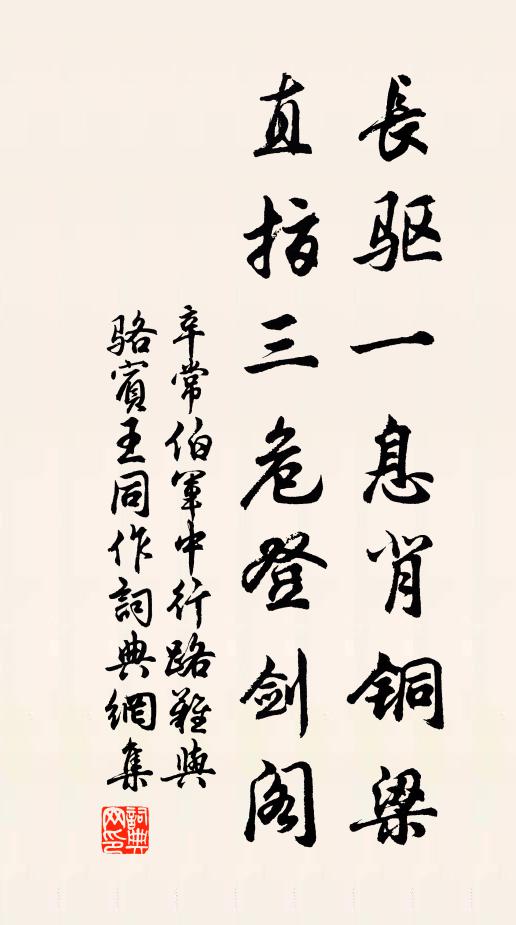 長驱一息背铜梁
直指三危登剑阁
辛常伯军中行路难與
骆賓王同作詞典網集
詞典
网印